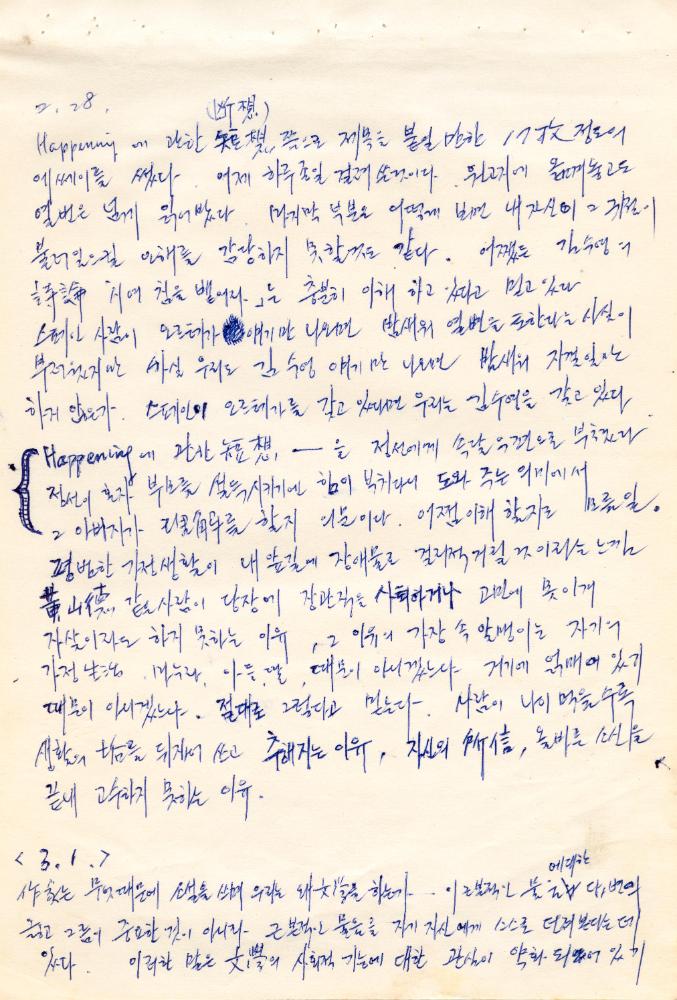 2. 28.
(断想)
Happening 에 관한 短想, 쯤으로 제목을 붙일 만한 17枚 정도의
에쎄이를 썼다. 어제 하루종일 걸려 쓴것이다. 원고지에 옮겨놓고도
열번은 넘게 읽어봤다. 마지막 부분은 어떻게 보면 내 자신이 그 귀절이
불러일으킬 오해를 감당하지 못할것도 같다. 어쨌든 김수영의
詩論 「시여 침을 뱉어라.」는 충분히 이해 하고 있다고 믿고 있다
스페인 사람이 오르테가 얘기만 나오면 밤새워 열변을 토한다는 사실이
부러웠지만 사실 우리도 김수영 얘기만 나오면 밤새워 자결일지는
하지 않은가. 스페인이 오르테가를 갖고 있다면 우리는 김수영을 갖고 있다
Happening 에 관한 短想, ㅡ을 정선에게 속달우편으로 부쳤다
정선이 혼자 부모를 설득시키기엔 힘이 부치다니 도와 주는 의미에서
그 아버지가 理解를 할지 의문이다. 어쩜 이해 할지도 모를 일。
평범한 가정생활이 내 앞길에 장애물로 걸리적거릴 것이라는 느낌
黃山德, 같은 사람이 당장에 장관직을 사퇴하거나 고민에 못이겨
자살이라도 하지 못하는 이유, 그 이유의 가장 속 알맹이는 자기의
가정生活 마누라, 아들, 딸, 때문이 아니겠느냐 거기에 얽매여 있기
때문이 아니겠느냐. 절대로 그렇다고 믿는다. 사람이 나이 먹을수록
생활의 를 뒤집어 쓰고 추해지는 이유, 자신의 所信, 올바른 소신을
끝내 고수하지 못하는 이유.
< 3. 1. >
作家는 무엇때문에 소설을 쓰며 우리는 왜 文學을 하는가. 이 근본적인 물음 에대한 답변의
그름이 중요한 것이 아니라 근본적인 물음을 자기 자신에게 스스로 던져 본다는데
있다. 이러한 말은 文學의 사회적 기능에 대한 관심이 약화 되어 있기